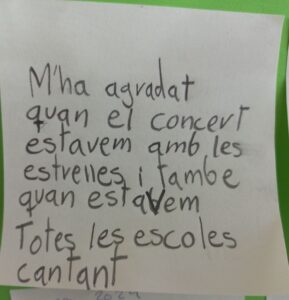 M'ha agradat
quan el concert
estavem amb les
estrelles i tambe
quan estavem
Totes les escoles
cantant